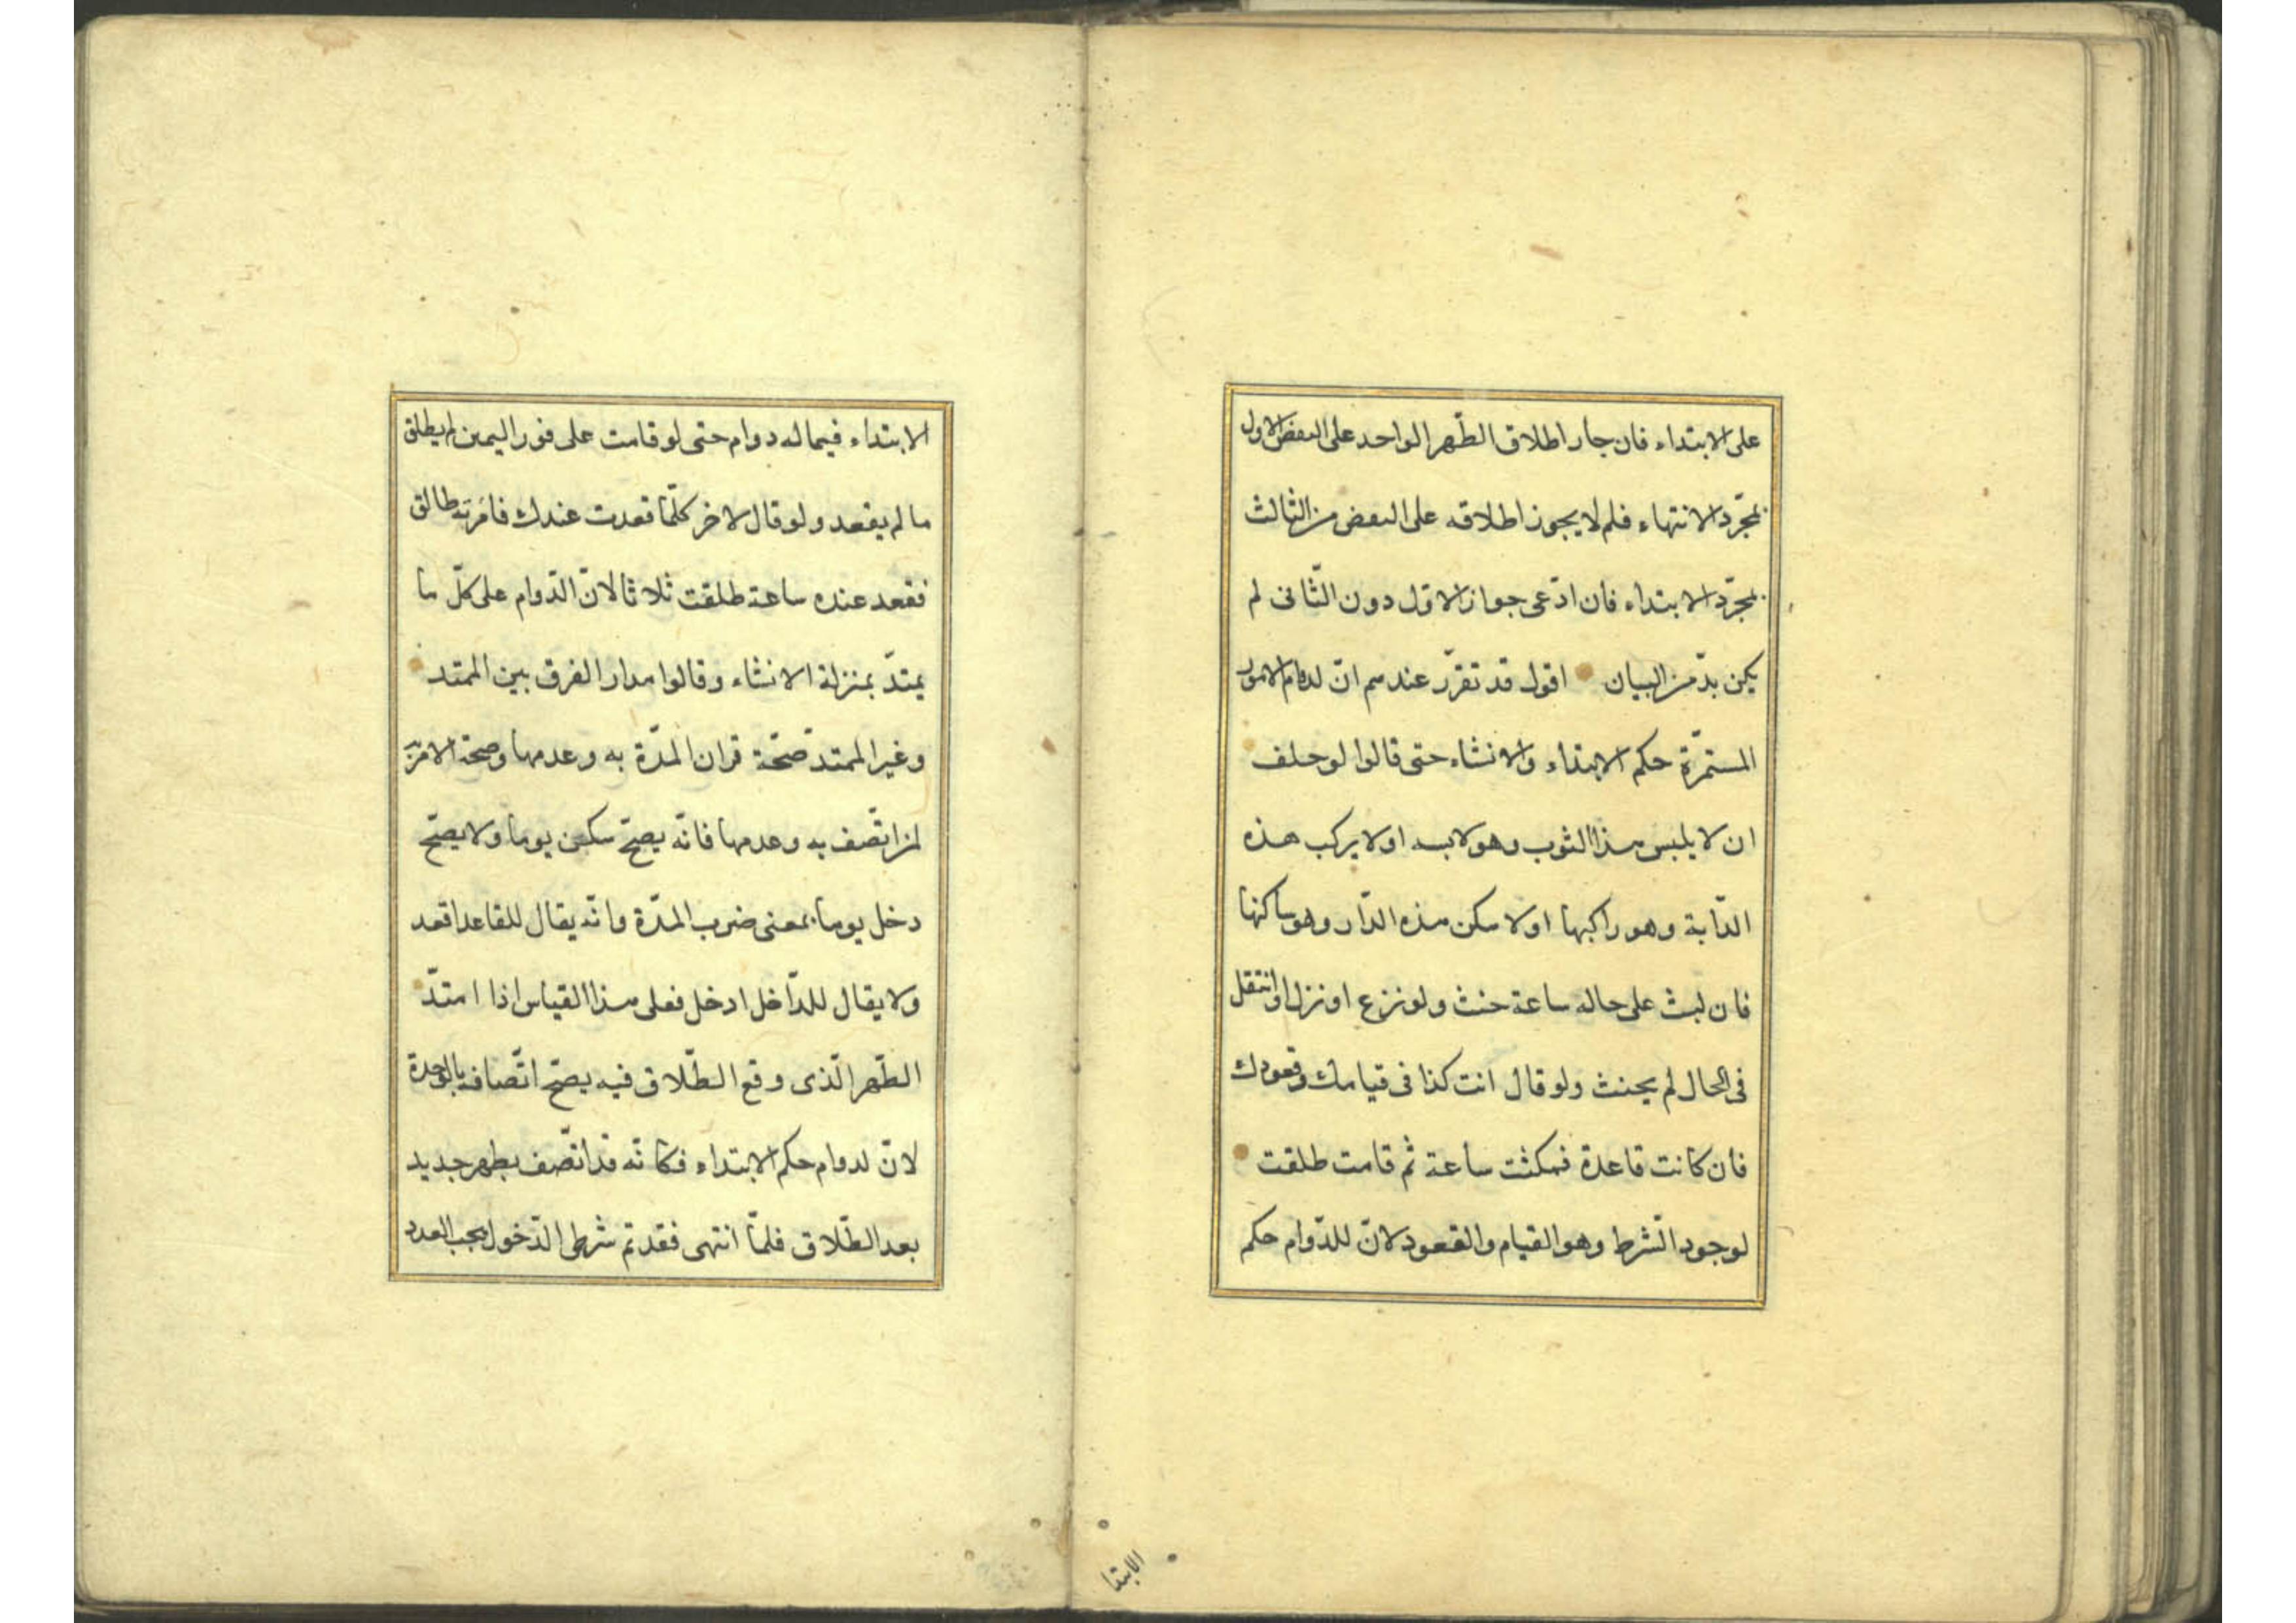 على الابتداء فان جاز اطلاق الطّهر الواحد على البعض الاول
بمجرّد الانتهاء فلم لا يجوز اطلاقه على البعض من الثالث
بمجرّد الابتداء فان ادّعى جواز الاوّل دون الثّانى لم
يكن بدّ من البيان اقول قد تقرّر عندهم انّ لدوام الامور
المستمرّة حكم الابتداء والانشاء حتى قالوا لو حلف
ان لا يلبس هذا الثوب وهو لابسه او لا يركب هذه
الدّابة وهو راكبها او لا سكن هذه الدّار وهو ساكنها
فان لبث على حاله ساعة حنث ولو نزع او نزل او انتقل
فى الحال لم يحنث ولو قال انت كذا فى قيامك وقعودك
فان كانت قاعدة فمكثت ساعة ثم قامت طلقت
لوجود الشّرط وهو القيام والقعود لانّ للدّوام حكم
الابتدا
الابتداء فيما له دوام حتى لو قامت على فور اليمين لم يطلق
ما لم يقعد ولو قال لاخر كلّما قعدت عندك فامرته طالق
فقعد عنده ساعة طلقت ثلاثا لانّ الدّوام على كلّ ما
يمتدّ بمنزلة الانشاء وقالوا مدار الفرق بين الممتد
وغير الممتد صحّة قران المدّة به وعدمها وصحة الامر به
لمن اتّصف به وعدمها فانّه يصحّ سكن يوما ولا يصحّ
دخل يوما بمعنى ضرب المدّة وانّه يقال للقاعد اقعد
ولا يقال للدّاخل ادخل فعلى هذا القياس اذا امتدّ
الطّهر الّذى وقع الطّلاق فيه يصحّ اتّصافه بالوحدة
لانّ لدوام حكم الابتداء فكانّه قد اتّصف بطهر جديد
بعد الطّلاق فلمّا انتهى فقد تمّ شرط الدّخول العدد